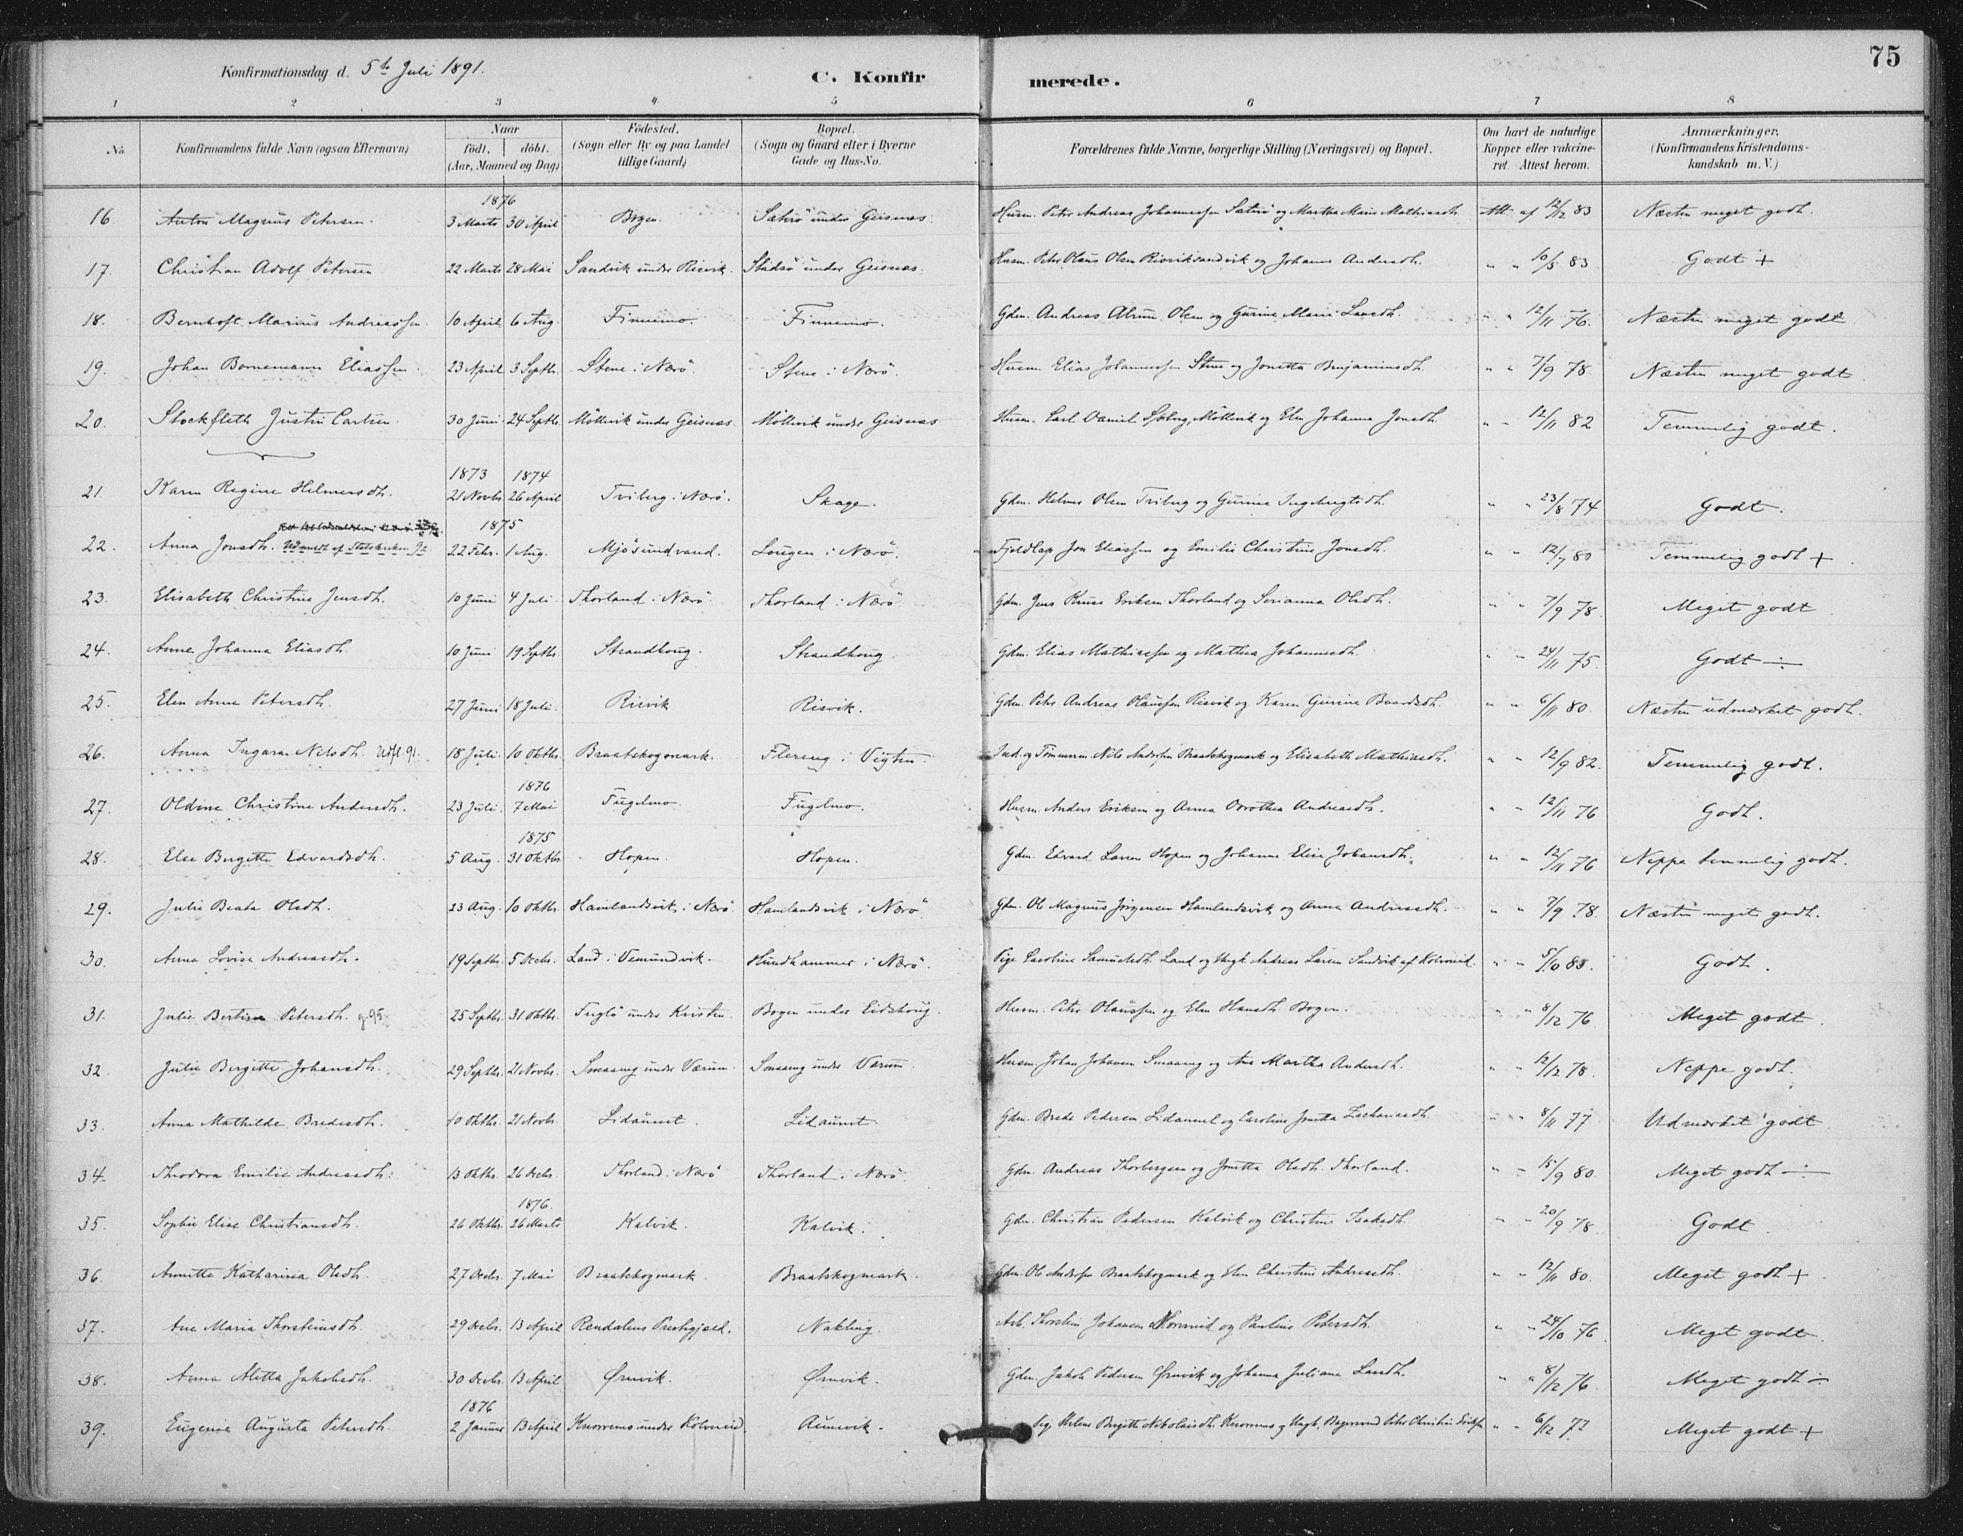 75
Konfirmationsdag d. 5te Juli 1891. C. Konfirmerede.
1 2 3 4 5 6 7 8
No. Konfirmandens fulde Navn (ogsaa Efternavn) Naar født. døbt. (Aar, Maaned og Dag) Fødested. (Sogn eller By og paa Landet tillige Gaard) Bopæl. (Sogn og Gaard eller i Byerne Gade og Hus-No. Forældrenes fulde Navne, borgerlige Stilling (Næringsvei) og Bopæl. Om havt de naturlige Kopper eller vakcineret. Attest herom. Anmærkninger. (Konfirmandens Kristendomskundskab m. V.)
1876
16. Anton Magnus Petersen. 3 Marts 30 April Bogen Sæterø under Geisnæs. Husm. Peter Andreas Johannessen Sæterø og Martha Marie Mathiasdh. Att. af 12/12 83 Næsten meget godt.
17. Christian Adolf Petersen 22 Marts 28 Mai Sandvik under Risvik. Stadsø under Geisnæs. Husm. Peter Olaus Olsen Risviksandvik og Johanna Andersdh. " " 10/5 83 Godt +
18. Berntoft Marius Andreassen. 10 April 6 Aug. Finnemo. Finnemo. Gdm. Andreas Olsen og Gurine Marie Larsdh. " " 12/11 76. Næsten meget godt
19. Johan Bornemann Eliassen. 23 April 3 Septbr. Stene i Nærö. Stene i Nærö. Husm. Elias Johannessen Stene og Jonetta Benjaminsdh. " " 7/9 78 Næsten meget godt.
20. Stockfleth Justin Carlsen. 30 Juni 24 Septbr. Möllevik under Geisnæs. Möllevik under Geisnæs Husm. Carl Daniel Möllevik og Elen Johanna Jonsdh. " " 12/11 82 Temmelig godt.
1873 1874
21. Karen Regine Helmersdh. 21 Novbr. 26 April Tviberg i Nærö. Skage. Gdm. Helmer Olsen Tviberg og Gurine Ingebrigtsdh. " " 23/8 74 Godt.
1875
22. Anna Jonsdh. Udmeldt af Statskirken 92. 22 Febr. 1 Aug. Mjösundvand. Lougen i Nærö. Fjeldlap Jon Eliassen og Emilie Christine Jonsdh. " " 12/7 80 Temmelig godt +
23. Elisabeth Christine Jensdh. 10 Juni 4 Juli Thorland i Nærö. Thorland i Nærö. Gdm. Jens Kruse Eriksen Thorland og Serianna Olsdh. " " 7/9 78 Meget godt
24. Anne Johanna Eliasdh. 10 Juni 19 Septbr. Strandhoug. Strandhoug. Gdm. Elias Mathiassen og Mathea Johannesdh. " " 24/11 75. Godt ÷
25. Elen Anna Petersdh. 27 Juni 18 Juli. Risvik Risvik. Gdm. Peter Andreas Olaussen Risvik og Karen Gurine Baardsdh. " " 6/11 80. Næsten udmærket godt.
26. Anna Ingara Nilsdh. Udfl. 91. 18 Juli 10 Oktbr. Braatskogmark. Flereng i Vigten. Ind. og Tömmerm. Nils Andersen Braatskogmark og Elisabeth Mathiasdh. " " 12/9 82. Temmelig godt.
1876
27. Oldine Christine Andersdh. 23 Juli 7 Mai Fugelmo Fugelmo. Husm. Anders Eriksen og Anna Dorothea Andreasdh. " " 12/11 76 Godt.
1875
28. Else Bergitte Edvardsdh. 5 Aug. 31 Oktbr. Hopen. Hopen. Gdm. Edvard Larsen Hopen og Johanna Elise Johansdh. " " 12/11 76 Neppe temmelig godt.
29. Julie Beata Olsdh. 23 Aug. 10 Oktbr. Hamlandsvik i Nærö. Hamlandsvik i Nærö. Gdm. Ole Magnus Jörgensen Hamlandsvik og Anna Andreasdh. " " 7/9 78. Næsten meget godt.
30. Anna Lovise Andreasdh. 19 Septbr. 5 Decbr. Land i Vemundvik. Hundhammer i Nærö. Pige Caroline Samuelsdh. Land og Ungk. Andreas Larsen Sandvik af Kolvereid. " " 5/10 83. Godt.
31. Julie Bertine Petersdh. g. 95. 25 Septbr. 31 Oktbr. Fuglö under Kvisten. Bogen under Eidshoug. Husm. Peter Olaussen og Elen Hansdh. Bogen. " " 8/12 76 Meget godt.
32. Julie Bergitte Johansdh. 29 Septbr. 21 Novbr. Smaaeng under Værum. Smaaeng under Værum. Husm. Johan Johansen Smaaeng og Ane Martha Andersdh. " " 12/12 78. Neppe godt.
33. Anna Mathilde Bredesdh. 10 Oktbr. 21 Novbr. Lidaunet. Lidaunet. Gdm. Brede Pedersen Lidaunet og Caroline Jonetta Zachariasdh. " " 8/11 77 Udmærket godt
34. Theodora Emilie Andreasdh. 13 Oktbr. 26 Decbr. Thorland i Nærö Thorland i Nærö. Gdm. Andreas Thorbergsen og Jonetta Olsdh. Thorland. " " 15/9 80. Meget godt ÷
1876
35. Sophie Elise Christiansdh. 26 Oktbr. 26 Marts Kalvik. Kalvik. Gdm. Christian Pedersen Kalvik og Christine Isaksdh. " " 20/9 78. Godt
36. Annette Katharina Olsdh. 27 Decbr. 7 Mai Braatskogmark. Braatskogmark. Gdm. Ole Andersen Braatskogmark og Elen Christine Andreasdh. " " 12/11 80. Meget godt +
37. Ane Maria Thorsteinsdh. 29 Decbr. 13 April Rendalens Prestegjæld. Nakling. Arb. Thorstein Johansen og Pauline Petersdh. " " 24/10 76. Meget godt.
38. Anna Aletta Jakobsdh. 30 Decbr. 13 April Ørnvik. Ørnvik. Gdm. Jakob Pedersen Ørnvik og Johanna Juliane Larsdh. " " 8/12 76. Meget godt ÷
1876
39. Eugenie Augusta Petersdh. 2 Januar 13 April Knorrens under Kolvereid. Aunvik. Pig. Helene Birgitte Nikolaisdh. og Ungk. Peter Christian " " 6/12 77. Meget godt +